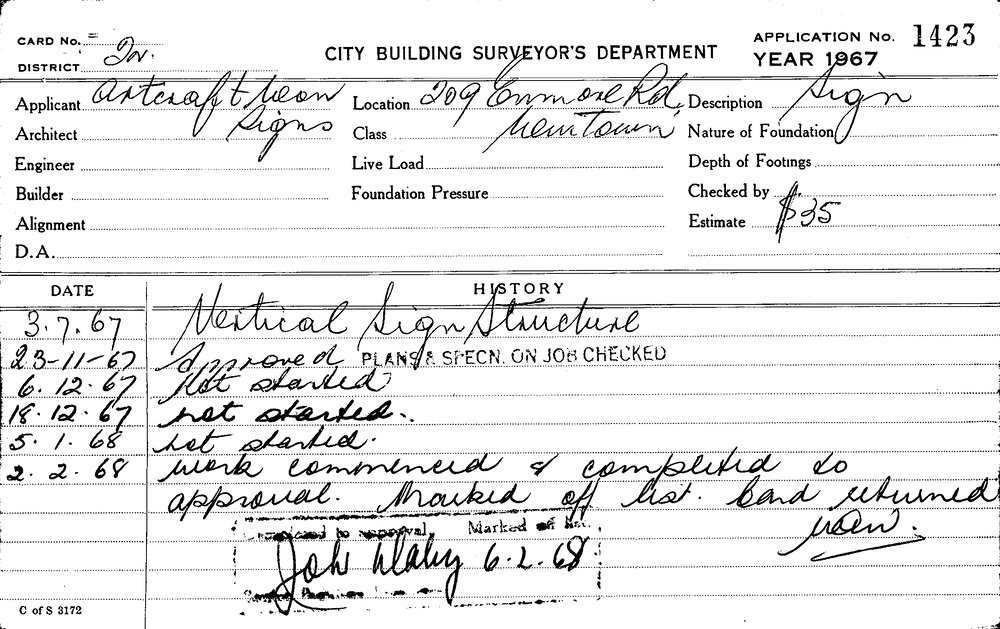 CARD No.
DISTRICT
CITY BUILDING SURVEYOR'S DEPARTMENT
APPLICATION No. 1423
YEAR 1967
Applicant Artcraft Neon Signs
Location 209 Enmore Rd. Newtown
Description Sign
Architect
Class
Nature of Foundation
Engineer
Live Load
Depth of Footings
Builder
Foundation Pressure
Checked by
Alignment
Estimate $35
D.A.
DATE HISTORY
3.7.67 Vertical Sign Structure
23-11-67 Approved PLANS & SPECN. ON JOB CHECKED
6.12.67 Not started
18.12.67 not started.
5.1.68 not started.
2.2.68 work commenced & completed to
approval. Marked off list. Card returned
to approval, Marked off list.
6-2-68
C of S 3172